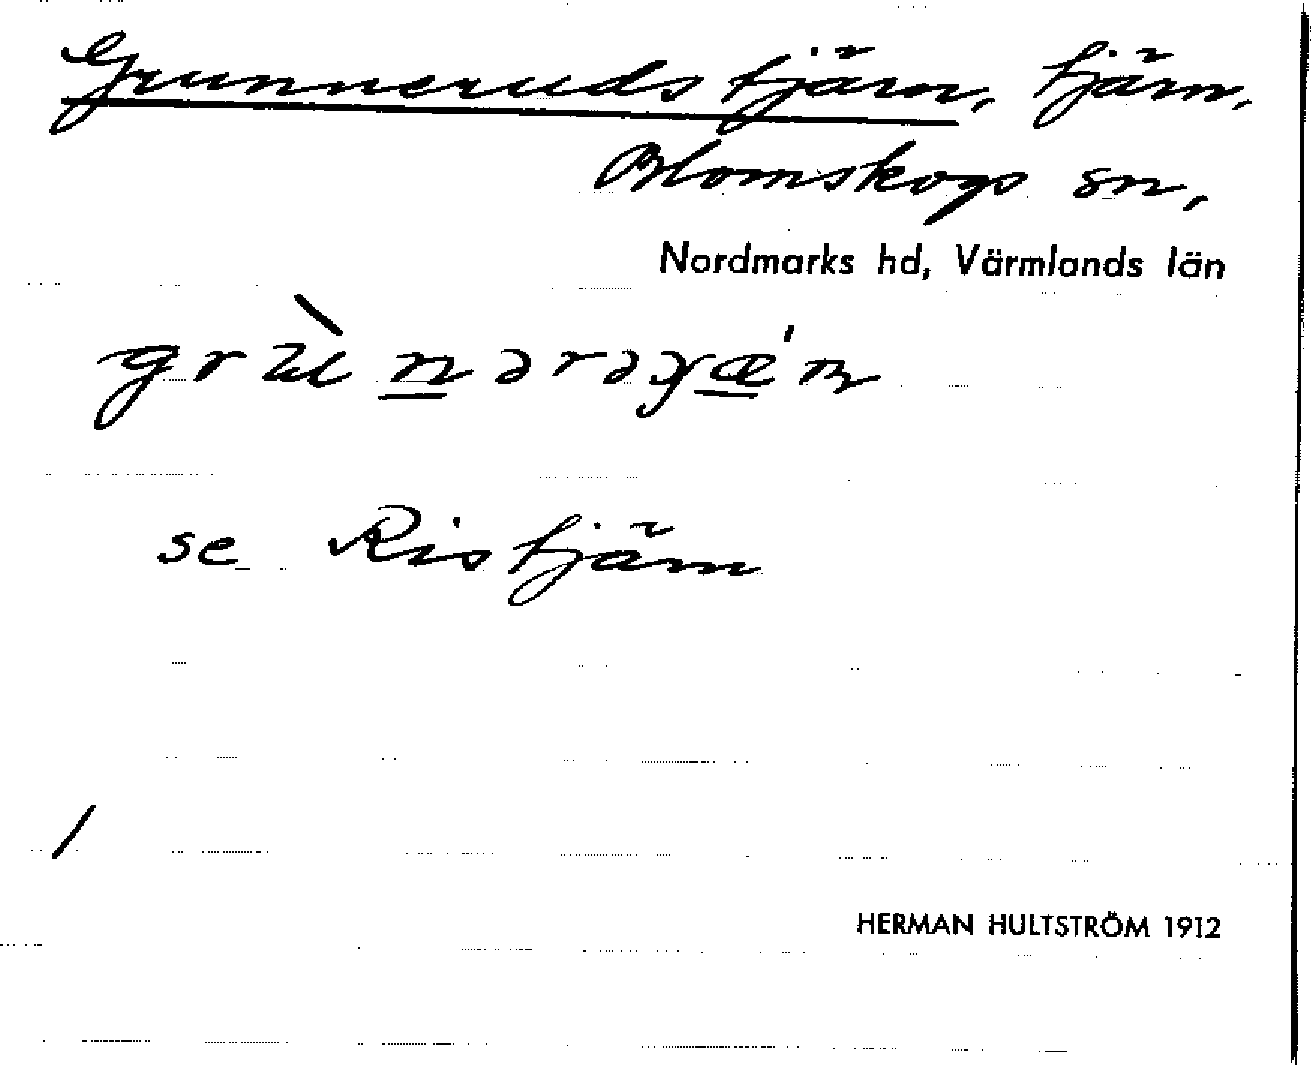 Grunneruds tjärn, tjärn,
Blomskogs sn,
Nordmarks hd, Värmlands län
se Ristjärn
/
HERMAN HULTSTRÖM 1912